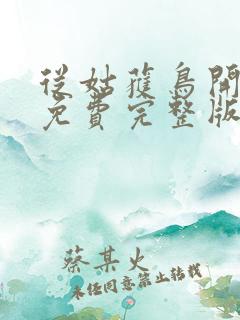 從姑獲鳥開
免費完整版
蔡某火
未經同意禁止轉載